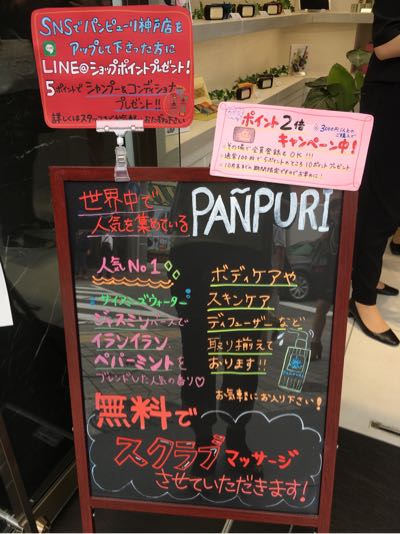 SNSでパンピューリ神戸店を
アップして下さった方に
LINE@ショップポイントプレゼント!
5ポイントでシャンプー&コンディショナー
プレゼント!!
詳しくはスタッフまでお気軽にお尋ね下さい
ポイント2倍
3000円以上の
ご購入で
キャンペーン中!
その場で会員登録もOK!!!
通常100円で5ポイントのところ10ポイントプレゼント
世界中で
人気を集めている
PAÑPURI
人気No.1
サイアミーズウォーター
ジャスミンベースで
イランイラン、
ペパーミントを
ブレンドした人気の香り♡
ボディケアや
スキンケア
ディフューザーなど
取り揃えて
おります!!
お気軽にお入り下さい!
無料で
スクラブマッサージ
させていただきます!